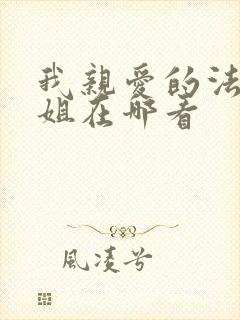 我親愛的法
姐在哪看
風凌兮